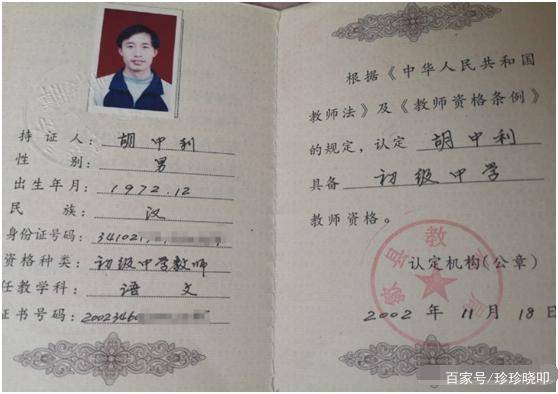 持证人：胡中利
性别：男
出生年月：1972.12
民族：汉
身份证号码：341021
资格种类：初级中学教师
任教学科：语文
证书号码：2002346
根据《中华人民共和国
教师法》及《教师资格条例》
的规定，认定 胡中利
具备 初级中学
教师资格。
教
县
局
认定机构(公章)
2002 年 11 月 18 日
百家号/珍珍晓叩